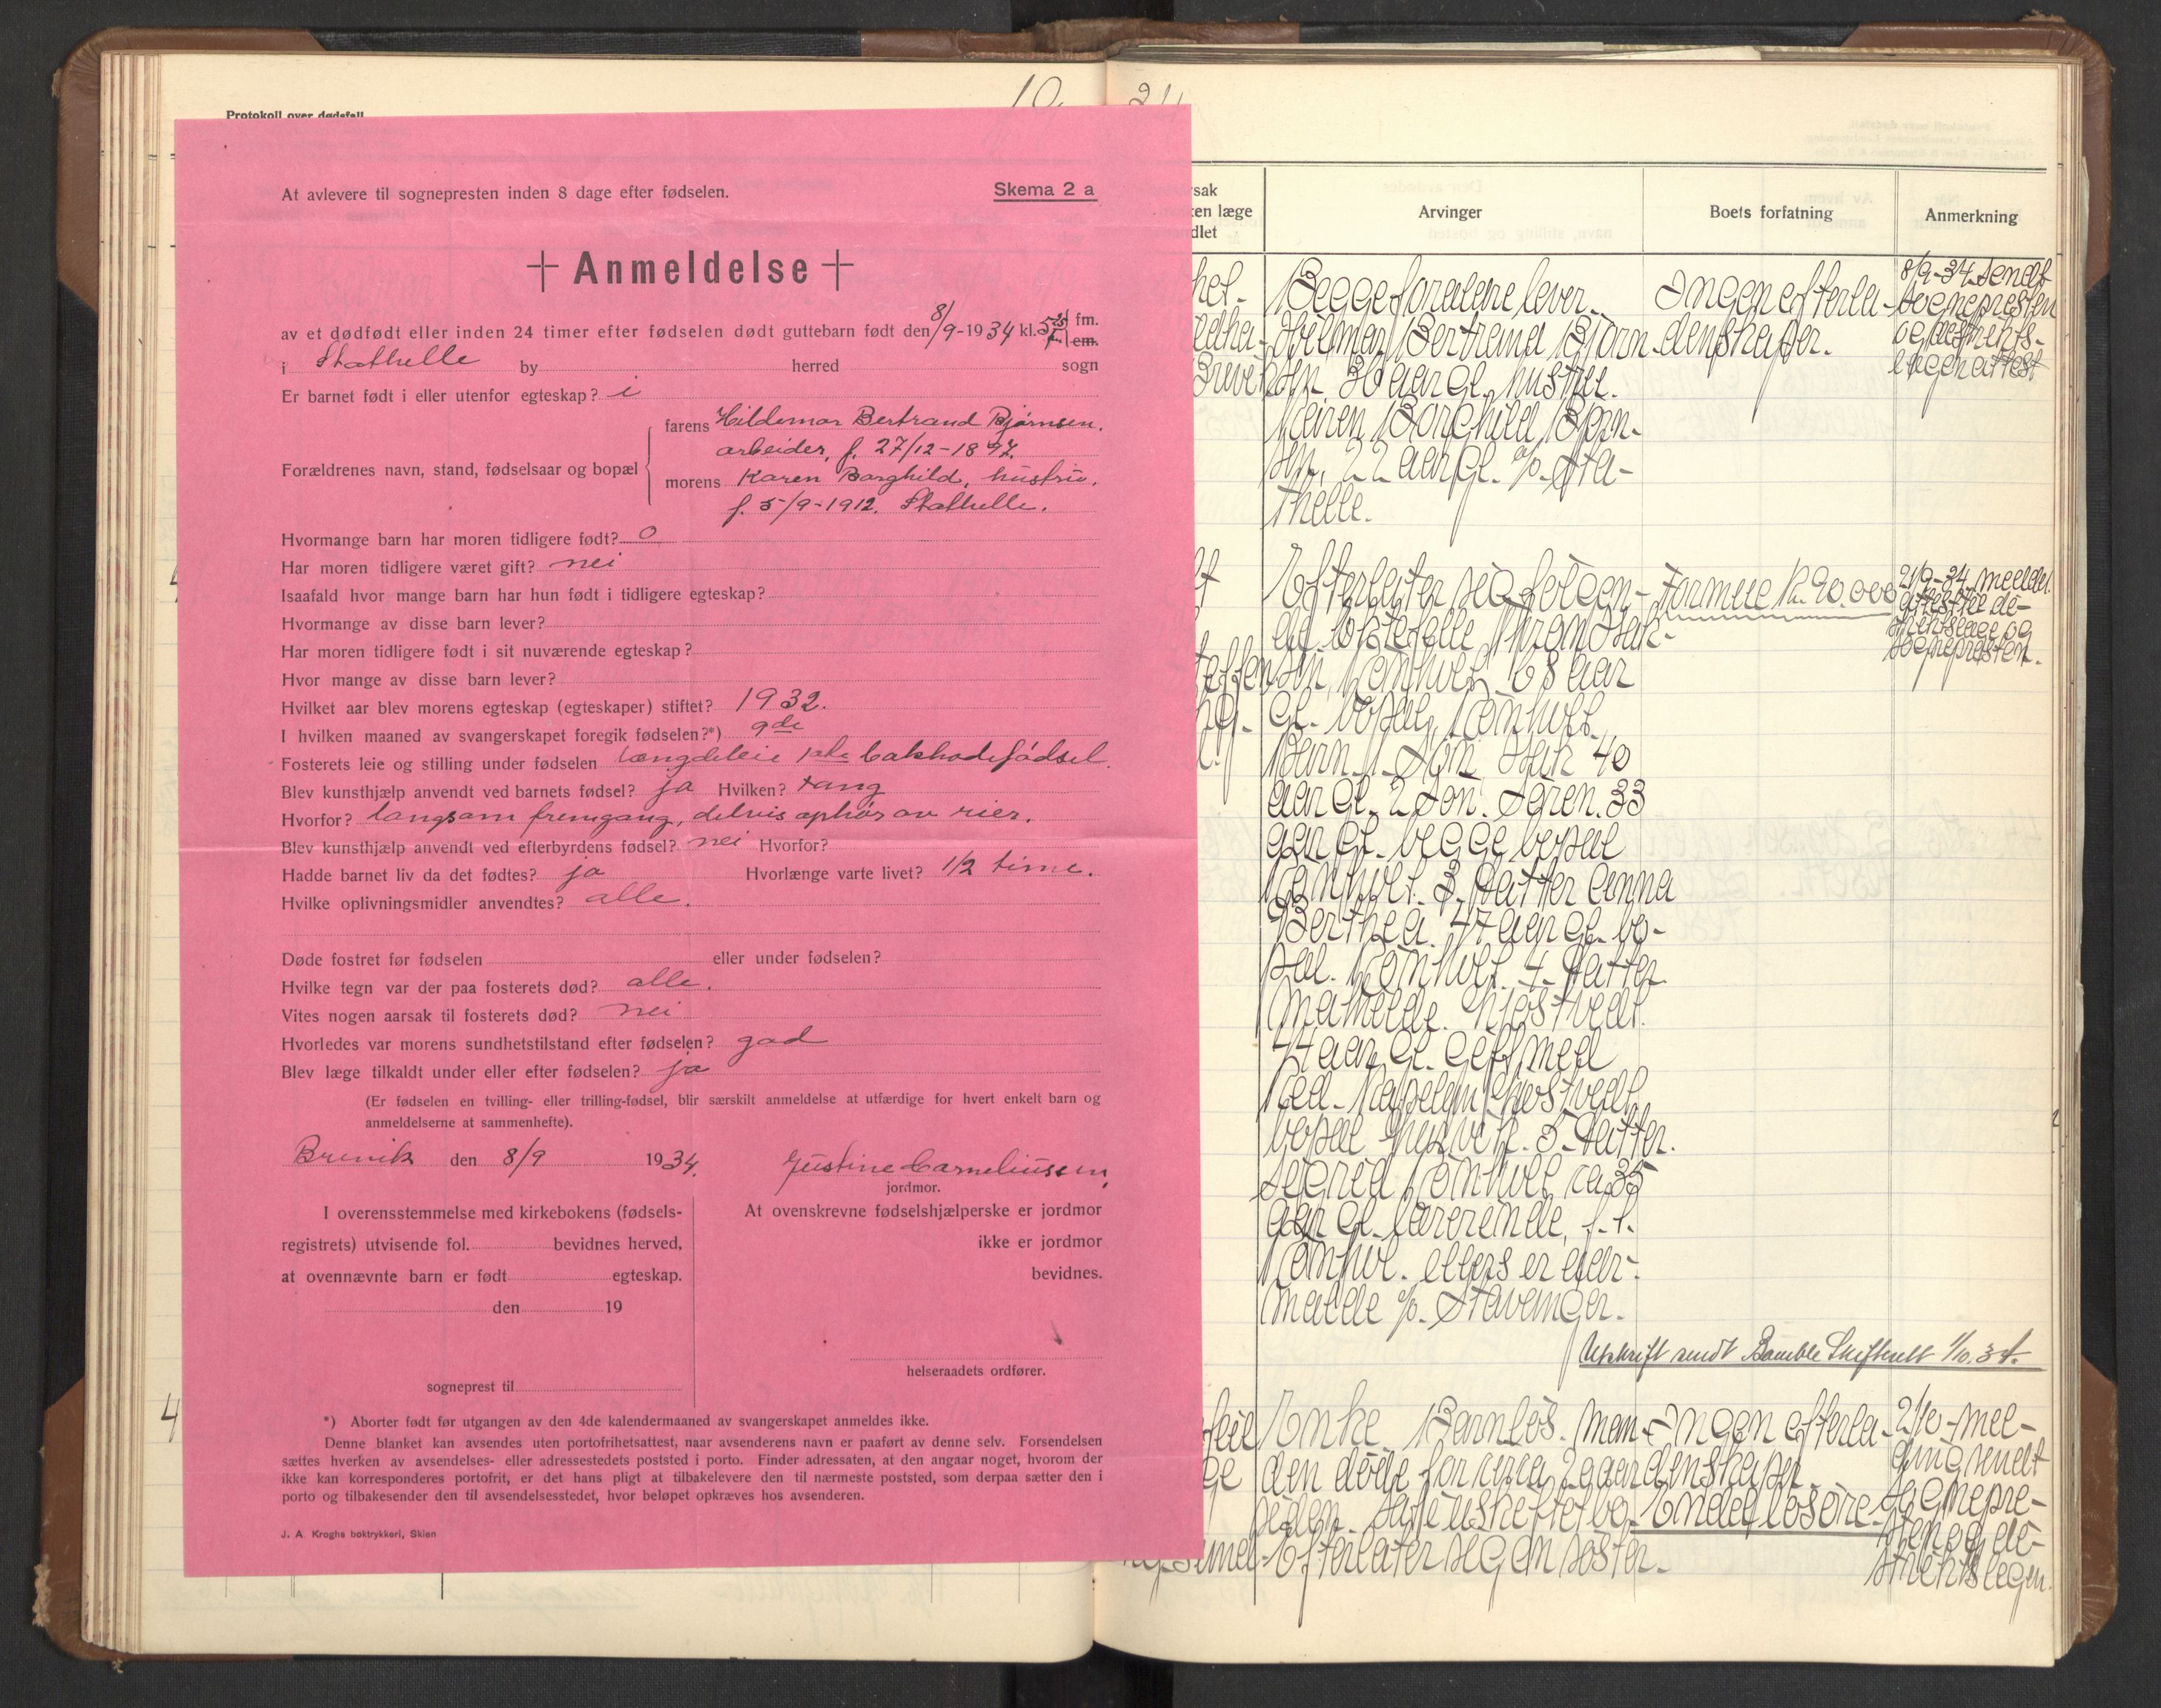 Protokoll over dødsfall
10
At avlevere til sognepresten inden 8 dage efter fødselen.
Skema 2 a
Anmeldelse
av et dødfødt eller inden 24 timer efter fødselen dødt guttebarn født den 8/9-1934 kl. fm. em.
i Stathelle by herred sogn
Er barnet født i eller utenfor egteskap? i
Forældrenes navn, stand, fødselsaar og bopæl
farens Hildemar Bertrand Bjørnsen.
arbeider, f. 27/12-1897.
morens Karen Borghild, hustru.
f. 5/9-1912. Stathelle.
Hvormange barn har moren tidligere født? 0
Har moren tidligere været gift? nei
Isaafald hvor mange barn har hun født i tidligere egteskap?
Hvormange av disse barn lever?
Har moren tidligere født i sit nuværende egteskap?
Hvor mange av disse barn lever?
Hvilket aar blev morens egteskap (egteskaper) stiftet? 1932.
I hvilken maaned av svangerskapet foregik fødselen?*) 9de
Fosterets leie og stilling under fødselen længdeleie 1ste bakhodefødsel.
Blev kunsthjælp anvendt ved barnets fødsel? ja Hvilken? tang
Hvorfor? langsom fremgang, delvis ophør av rier.
Blev kunsthjælp anvendt ved efterbyrdens fødsel? nei Hvorfor?
Hadde barnet liv da det fødtes? ja Hvorlænge varte livet? 1/2 time.
Hvilke oplivningsmidler anvendtes? alle.
Døde fostret før fødselen eller under fødselen?
Hvilke tegn var der paa fosterets død? alle.
Vites nogen aarsak til fosterets død? nei
Hvorledes var morens sundhetstilstand efter fødselen? god
Blev læge tilkaldt under eller efter fødselen? ja
(Er fødselen en tvilling- eller trilling-fødsel, blir særskilt anmeldelse at utfærdige for hvert enkelt barn og
anmeldelserne at sammenhefte).
Brevik den 8/9 1934.
Justine Corneliussen,
jordmor.
I overensstemmelse med kirkebokens (fødsels-
registrets) utvisende fol. bevidnes herved,
at ovennævnte barn er født egteskap.
den 19
sogneprest til
At ovenskrevne fødselshjælperske er jordmor
ikke er jordmor
bevidnes.
helseraadets ordfører.
*) Aborter født før utgangen av den 4de kalendermaaned av svangerskapet anmeldes ikke.
Denne blanket kan avsendes uten portofrihetsattest, naar avsenderens navn er paaført av denne selv. Forsendelsen
sættes hverken av avsendelses- eller adressestedets poststed i porto. Finder adressaten, at den angaar noget, hvorom der
ikke kan korresponderes portofrit, er det hans pligt at tilbakelevere den til nærmeste poststed, som derpaa sætter den i
porto og tilbakesender den til avsendelsesstedet, hvor beløpet opkræves hos avsenderen.
J. A. Kroghs boktrykkeri, Skien
rsak
ken læge
dlet
Arvinger
Boets forfatning
Anmerkning
Begge forældrene lever.
Hilemar Bertrand Bjørn-
sen 36 aar gl. hustru.
Karen Borghild Bjørn-
sen, 22 aar gl. b/o. Sta-
thelle.
Ingen efterla-
denskaper.
8/9-34 sendt
sognepresten
og distrikts-
legen attest
Efterlater sig følgen-
de ektefelle
68 aar
gl. bopæl
Barn 1. Søn Isak 40
aar gl. 2 Søn. Søren. 33
aar gl. begge bopæl
3. Datter Anna
Berthea. 47 aar gl. bo-
pæl. 4. Datter
Mathilde. Kjøstvedt.
44 aar gl. gift med
bopæl 5. Datter.
Sigrid ca 35
aar gl. lærerinde, f. t.
ellers er ader-
Stavanger.
Formue kr. 20.000
21/9-34 meldel.
sognepresten.
Utskrift sendt Bamble Skifterett 1/10. 34.
Enke. Barnløs. Man-
den døde for circa 2 aar
siden. Har uskiftet bo.
Efterlater seg en søster.
Ingen efterla-
denskaper.
Endel løsøre.
2/10-mel-
ding sendt
sognepre-
sten og di-
striktslegen.